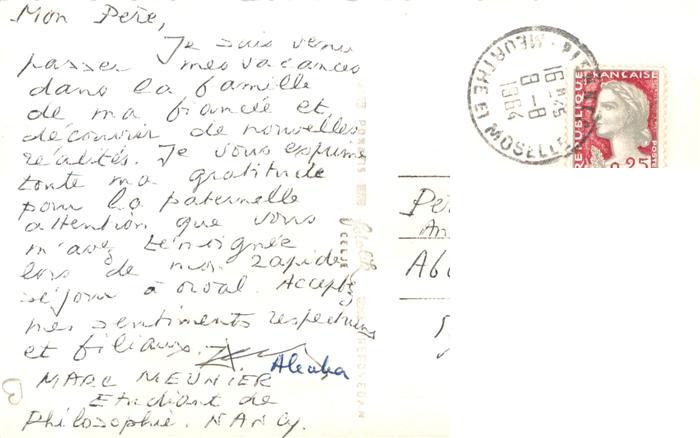 Mon Père,
Je suis venu
passer mes vacances
dans la famille
de ma fiancée et
découvrir de nouvelles
réalités. Je vous exprime
toute ma gratitude
pour la paternelle
attention que vous
m'avez témoignée
lors de mon rapide
séjour à Orval. Acceptez
mes sentiments respectueux
et filiaux.
MARC MEUNIER
Etudiant de
Philosophie. NANCY.
16 H45
8-8
1964
MEURTHE ET MOSELLE
REPUBLIQUE FRANCAISE
0.25
POSTES
CELJE